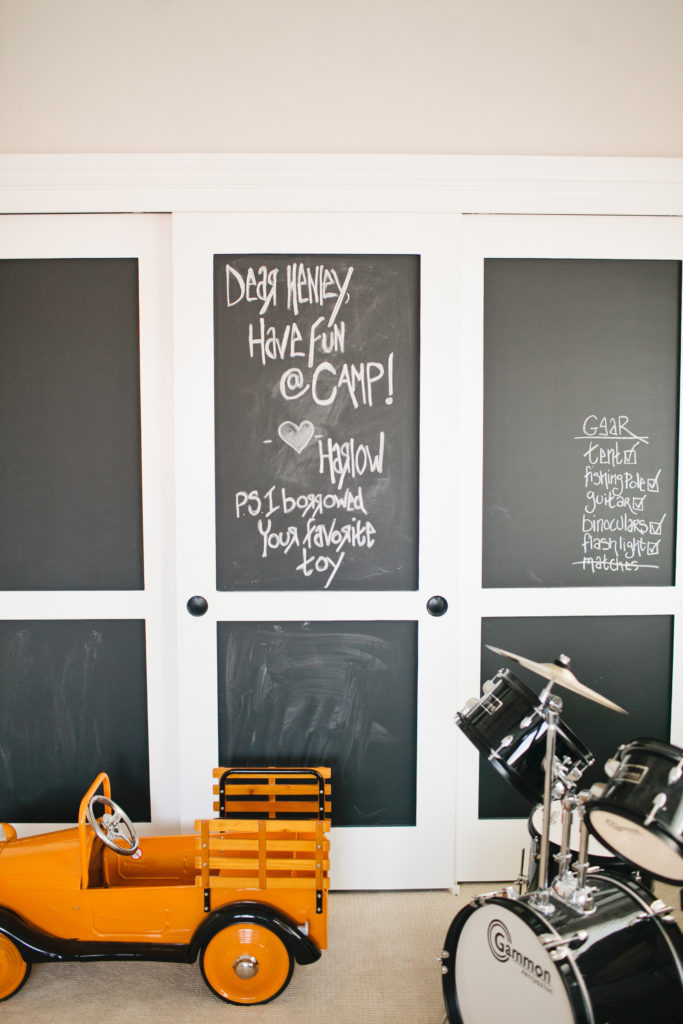 Dear Henley,
Have fun
@ Camp!
- ♥ -
Harlow
P.S. I borrowed
Your favorite
toy
Gear
tent ☑
fishing Pole ☑
guitar ☑
binoculars ☑
flash light ☑
matches
Gammon
PERCUSSION